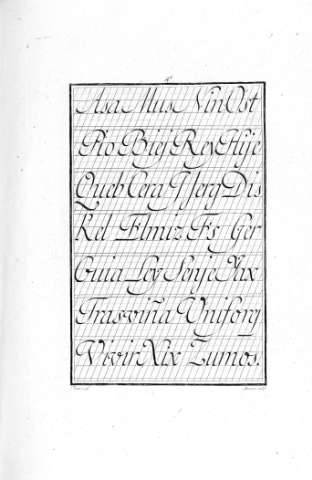 Asa Mus Nin Ost
Pio Biej Rey Hije
Queb Cera Jserg Dis
Kel Elmiz Fs Ger
Guia Ley Senje Yax
Trasviña Unisorg
Vivir Xix Zumos.